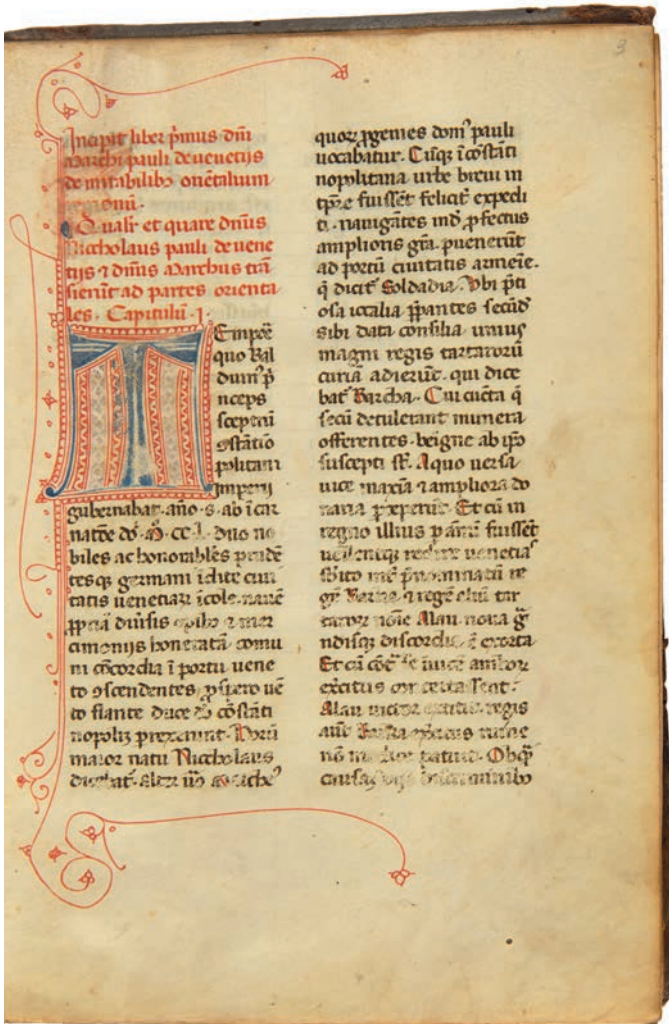 3
Incipit liber p̄mus dn̄i
Marchi pauli de uenetijs
de mirabilib₉ orientalium
regionū.
Qualr̄ et quare dn̄us
Niccholaus pauli de uene
tijs ⁊ dn̄us Marchus trā
sierūt ad partes orienta
les. Capitulū. I.
Tempoꝛe
quo Bal
duin₉ p̄
nceps
sceptrū
ꝯstātino
politani
Imperij
gubernabat. año. s. ab īcar
natōe dn̄i. M. CC. L. duo no
biles ac honorabiles prudē
tesq̨ germani īclite ciui
tatis uenetiaꝝ īcole. nauē
ꝓpriā diu̓sis opib₉ ⁊ mer
cimonijs honeratā. comu
ni cōcordia ī portu uene
to ꝯscendentes. ꝓspero uē
to flante duce deo cōstāti
nopolim prexerunt. Horū
maior natu Niccholaus
dicebat̄. alter u̓o Marche₉
quoꝝ ꝓgenies dom₉ pauli
uocabatur. Cūq̨ ī cōstāti
nopolitana urbe breui in
tp̄re fuissēt felicit̄ expedi
ti. nauigātes īnd̓ ꝓfectus
amplioris gr̄a. puenerūt
ad portū ciuitatis armeīe.
q̄ dicit̄ Soldadia. Vbi p̄ti
osa iocalia p̄parātes secūd₉
sibi data consilia unius
magni regis tartaroꝝū
curiā adierūt. qui dice
bat̄ Barcha. Cui cūcta q̄
secū detulerant munera
offerentes. beīgne ab ip̄o
suscepti st̄. A quo uersa
uice maxīa ⁊ ampliora do
naria p̄ceperūt. Et cū in
regno illius p annū fuissēt
uellentq̨ redire uenetias
sbīto inē p̄nominatū re
gē Barcha ⁊ regē aliū tar
taroꝝ noīe Alau. noua ḡ
ndisq̨ discordia. ē exorta.
Et cū cōt̄ se īuicē amboꝝ
exercitus
Alau uictor extitit. regis
aut̄ Barcha exercitus
nō